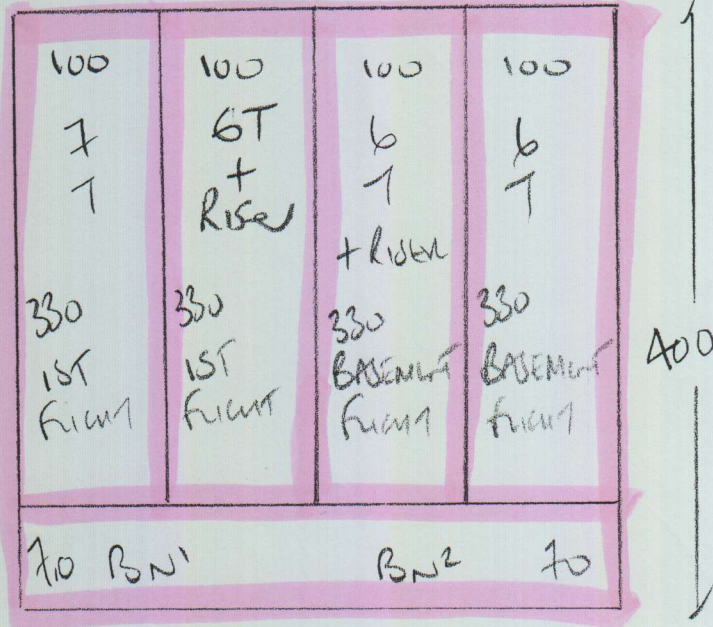 100
7
T
330
1ST
FLIGHT
100
6T
+
RISER
330
1ST
FLIGHT
100
6
T
+ RISER
330
BASEMENT
FLIGHT
100
6
T
330
BASEMENT
FLIGHT
400
70 BN1
BN2 70